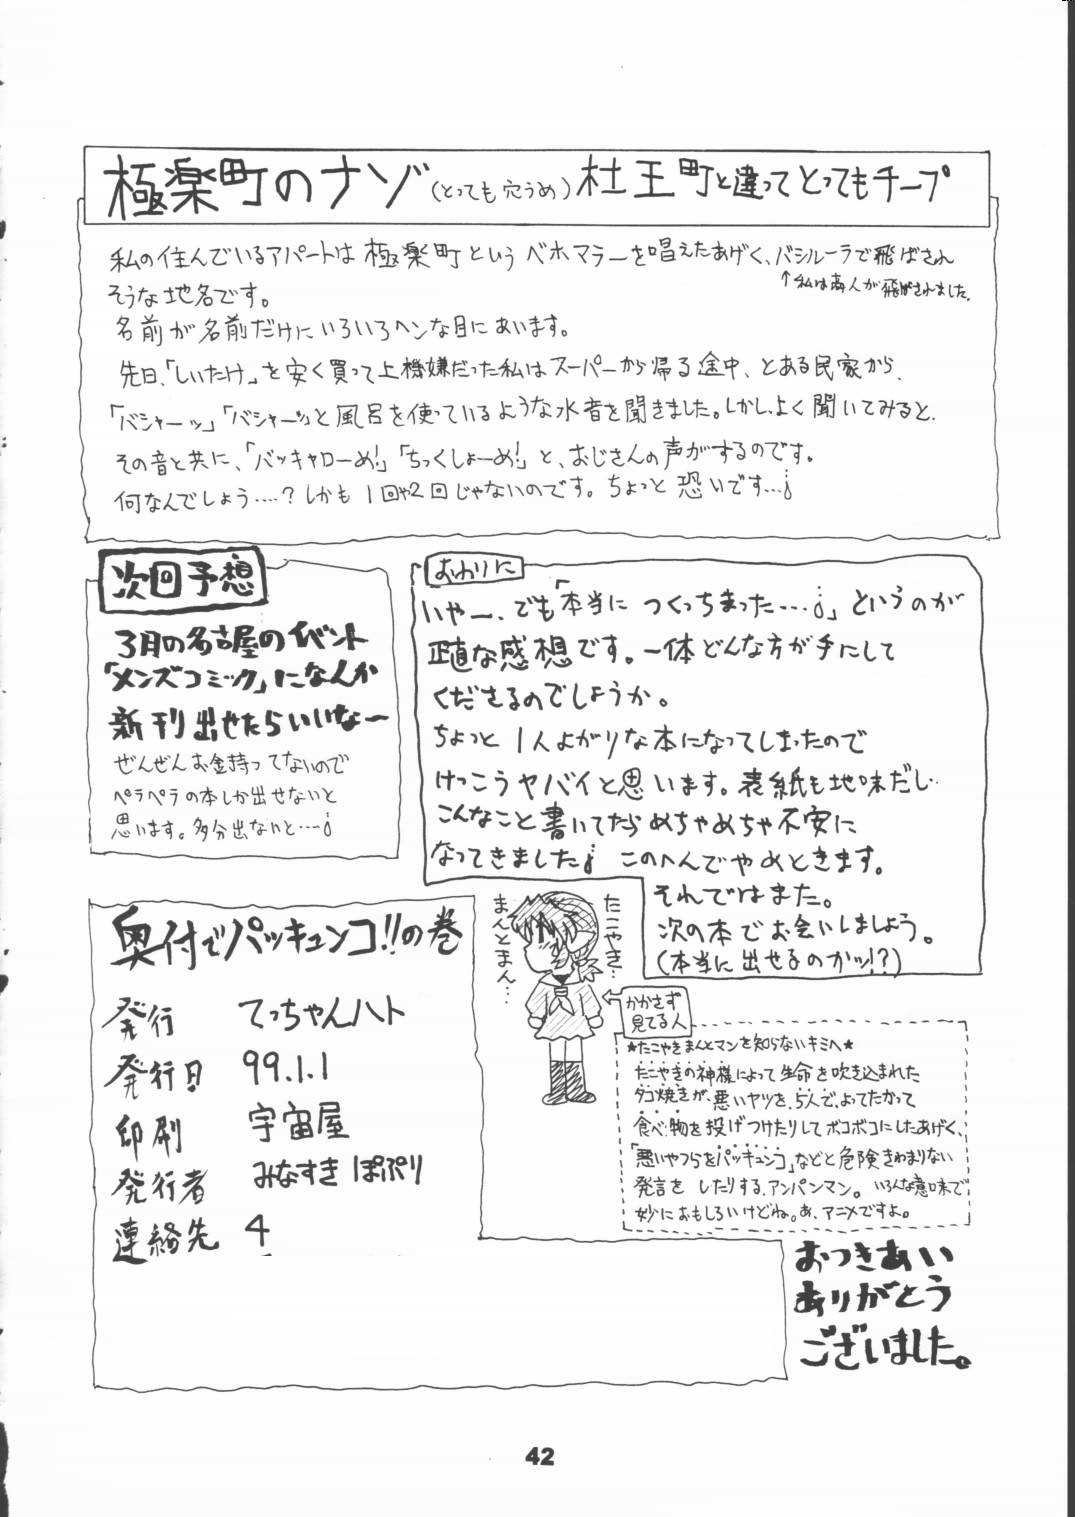 極楽町のナゾ(とっても穴うめ)杜王町と違ってとってもチープ
私の住んでいるアパートは極楽町というベホマラーを唱えたあげく、バシルーラで飛ばされ
そうな地名です。
↑私は商人が飛ばされました。
名前が名前だけにいろいろヘンな目にあいます。
先日、「しいたけ」を安く買って上機嫌だった私はスーパーから帰る途中、とある民家から、
「バシャーッ」「バシャーッ」と風呂を使っているような水音を聞きました。しかし、よく聞いてみると、
その音と共に、「バッキャローめ!」「ちっくしょーめ!」と、おじさんの声がするのです。
何なんでしょう‥‥?しかも1回や2回じゃないのです。ちょっと恐いです…¡
次回予想
3月の名古屋のイベント
「メンズコミック」になんか
新刊出せたらいいなー
ぜんぜんお金持ってないので
ペラペラの本しか出せないと
思います。多分出ないと…¡
おわりに
いやー、でも「本当につくっちまった…¡」というのが
正直な感想です。一体どんな方が手にして
くださるのでしょうか。
ちょっと1人よがりな本になってしまったので
けっこうヤバイと思います。表紙も地味だし‥
こんなこと書いてたらめちゃめちゃ不安に
なってきました¡このへんでやめときます。
それではまた。
次の本でお会いしましょう。
(本当に出せるのかッ!?)
奥付でパッキュンコ!!の巻
発行 てっちゃんハト
発行日 99.1.1
印刷 宇宙屋
発行者 みなすき ぽぷり
連絡先 4
たこやき…
まんとまん…
かかさず
見てる人
★たこやきまんとマンを知らないキミへ★
たこやきの神様によって生命を吹き込まれた
タコ焼きが、悪いヤツを、5人で、よってたかって
食べ物を投げつけたりしてボコボコにしたあげく、
「悪いやつらをパッキュンコ」などと危険きわまりない
発言をしたりする、アンパンマン。いろんな意味で
妙におもしろいけどね。あ、アニメですよ。
おつきあい
ありがとう
ございました。
42